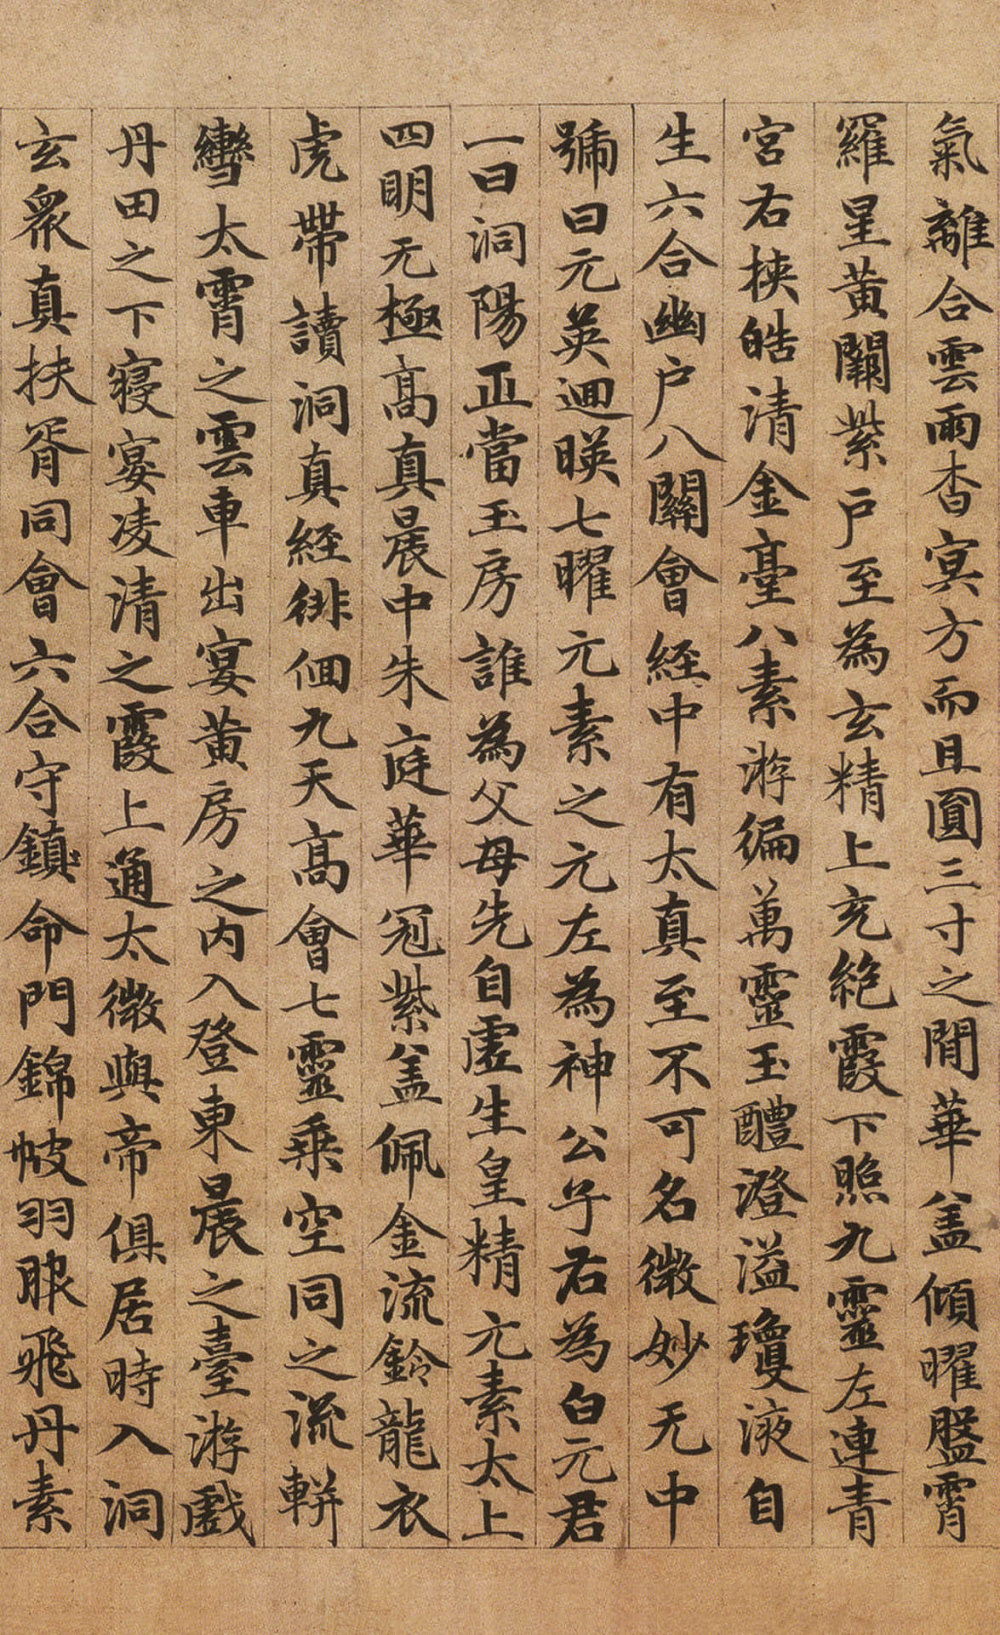 氣離合雲雨杳冥方而且圓三寸之間華盖傾曜盤霄
羅星黃闕紫户至為玄精上充絶霞下照九靈左連青
宮右挾皓清金臺八素游徧萬靈玉醴澄溢瓊液自
生六合幽户八關會經中有太真至不可名微妙无中
號曰元英迴暎七曜元素之元左為神公子右為白元君
一曰洞陽正當玉房誰為父母先自虛生皇精元素太上
四明无極高真晨中朱庭華冠紫盖佩金流鈴龍衣
虎帶讀洞真經徘徊九天高會七靈乗空同之流輧
轡太霄之雲車出宴黃房之内入登東晨之臺游戲
丹田之下寝宴凌清之霞上通太微與帝俱居時入洞
玄衆真扶胥同會六合守鎮命門錦帔羽服飛丹素